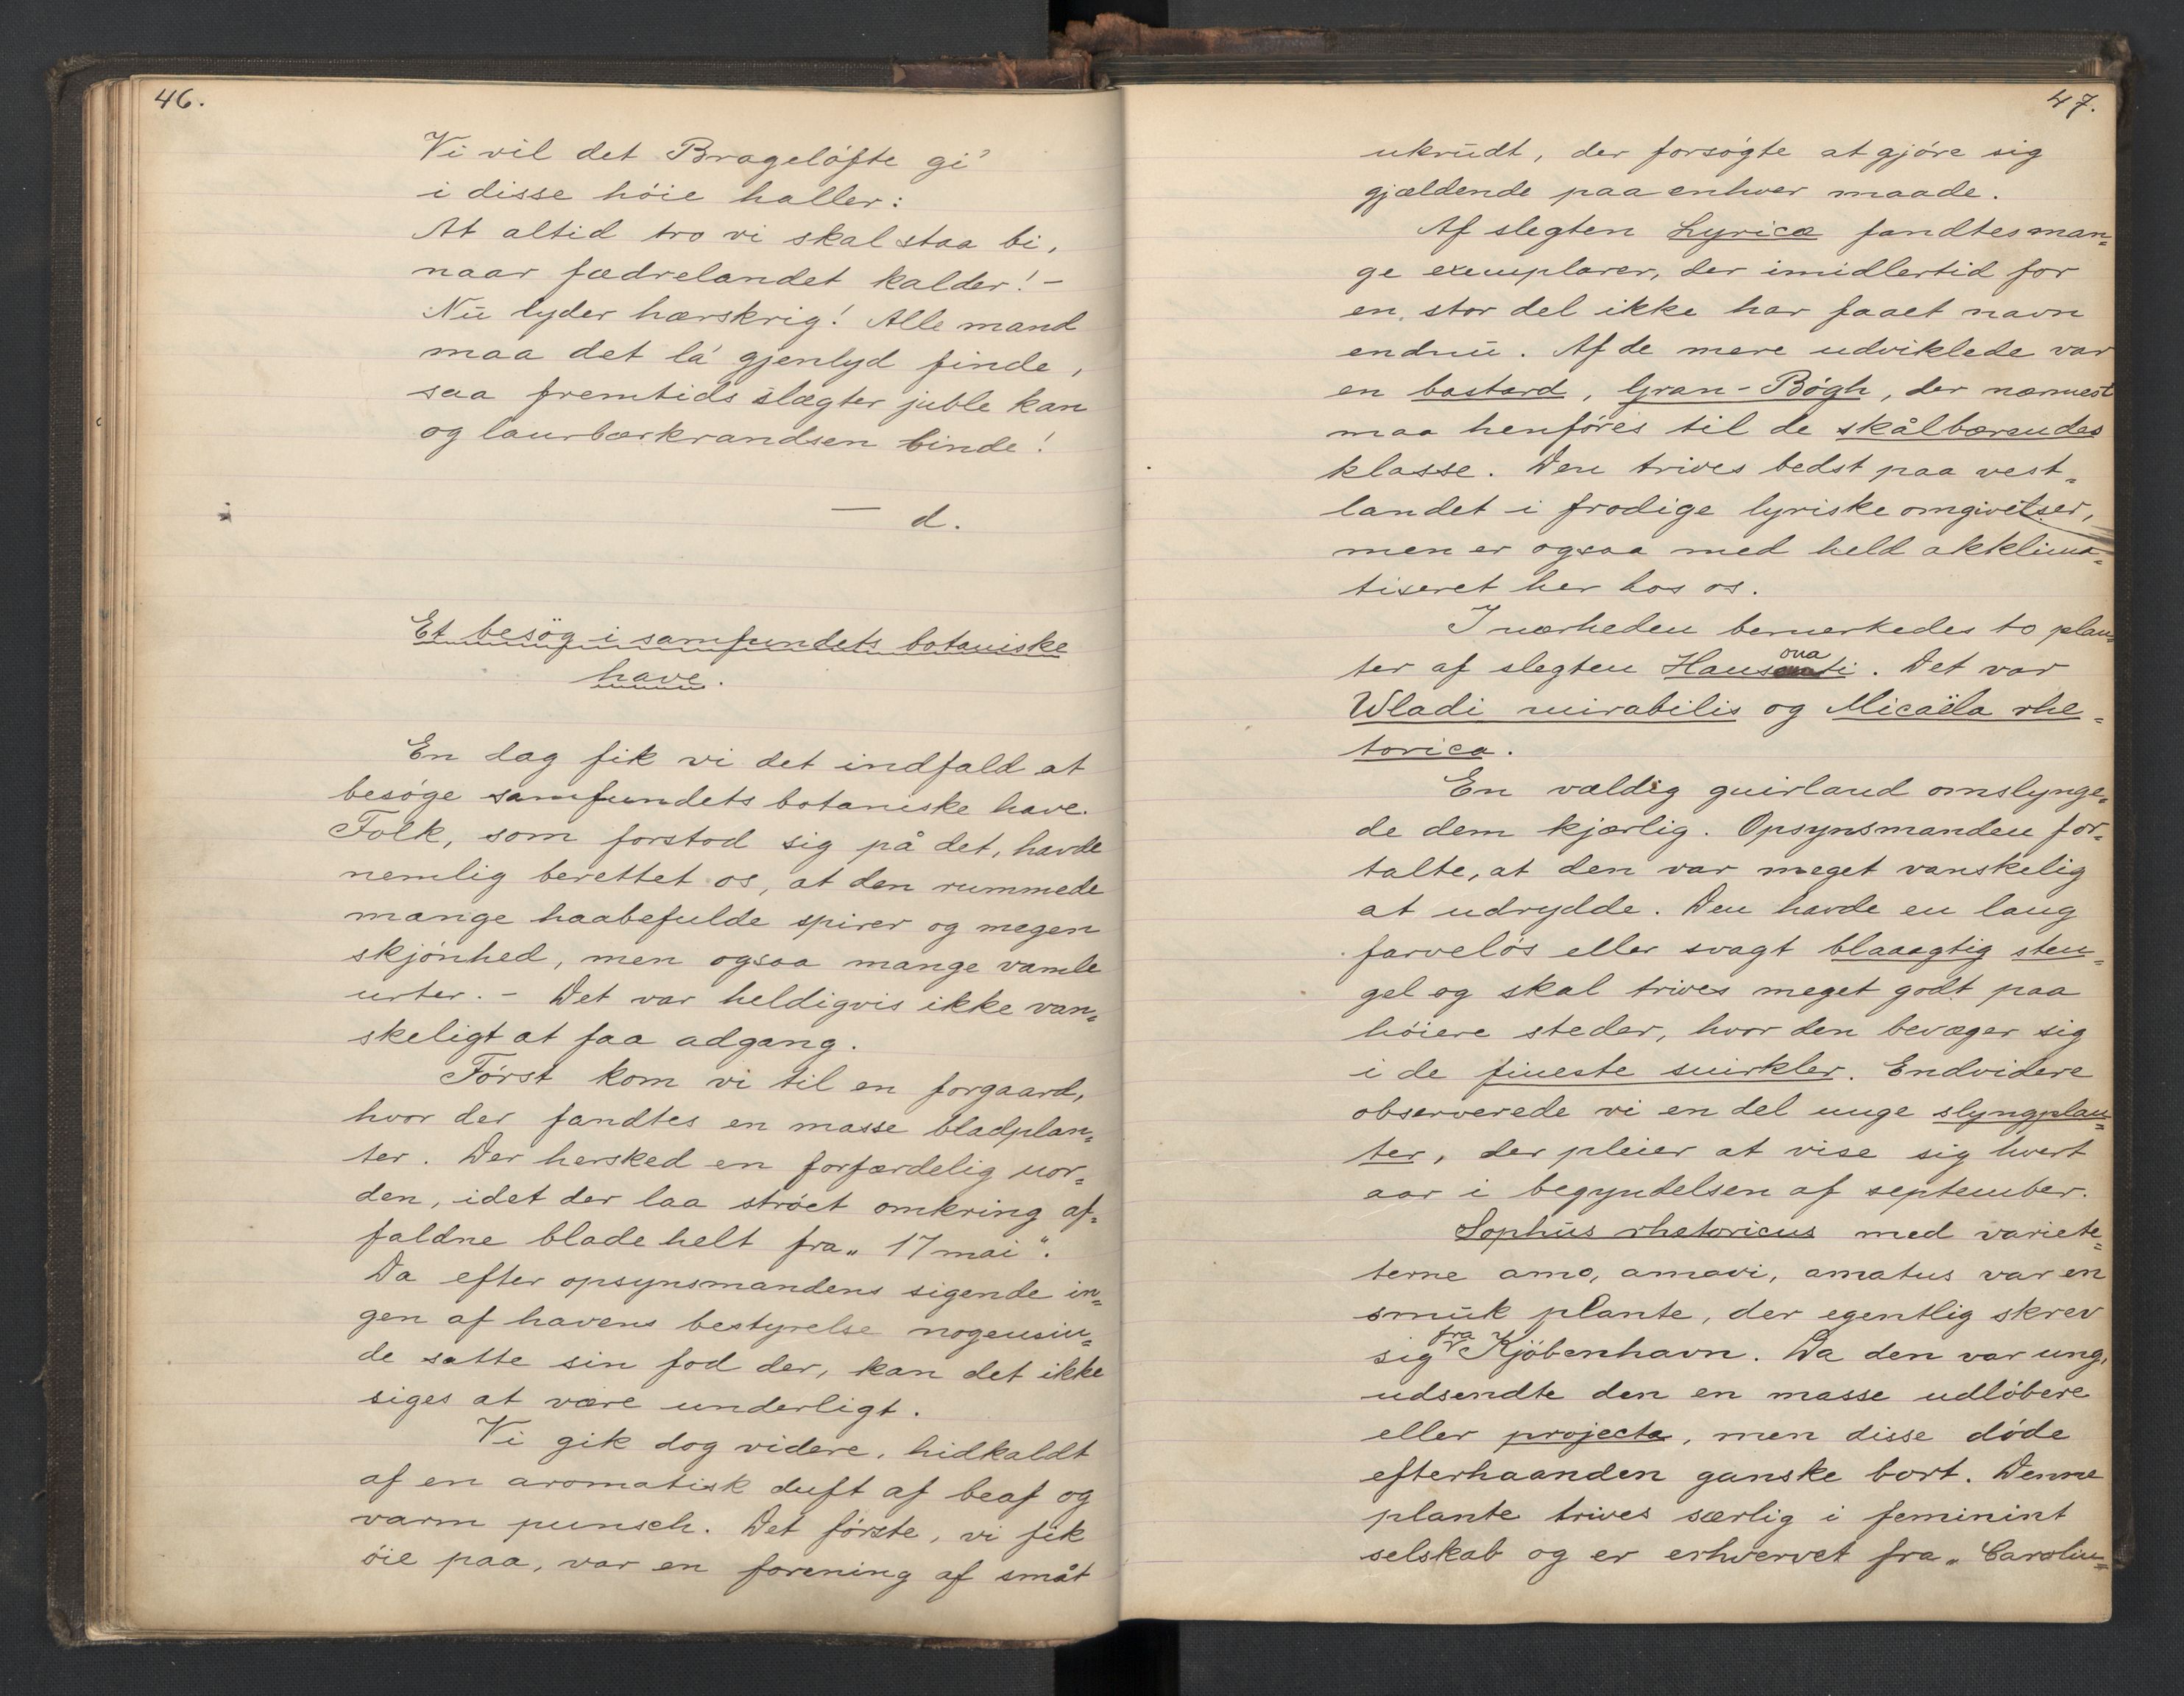 46.
Vi vil det Brageløfte gi'
i disse høie haller:
At altid tro vi skal staa bi,
naar fædrelandet kalder! –
Nū lyder hærskrig! Alle mand
maa det la' gjenlyd finde,
saa fremtids slægter juble kan
og laurbærkrandsen binde!
— d.
Et besøg i samfundets botaniske
have.
En dag fik vi det indfald at
besøge samfundets botaniske have.
Folk, som forstod sig på det, havde
nemlig berettet os, at den rummede
mange haabefulde spirer og megen
skjønhed, men ogsaa mange vamle
urter. – Det var heldigvis ikke van=
skeligt at faa adgang.
Først kom vi til en forgaard,
hvor der fandtes en masse bladplan=
ter. Der hersked en forfærdelig uor=
den, idet der laa strøet omkring af=
faldne blade helt fra „17 mai“.
Da efter opsynsmandens sigende in=
gen af havens bestyrelse nogensin=
de satte sin fod der, kan det ikke
siges at være underligt.
Vi gik dog videre, hidkaldt
af en aromatisk duft af beaf og
varm punsch. Det første, vi fik
øie paa, var en forening af småt
47.
ukrūdt, der forsøgte at gjøre sig
gjældende paa enhver maade.
Af slegten Lyrica fandtes man=
ge exemplarer, der imidlertid for
en stor del ikke har faaet navn
endnū. Af de mere udviklede var
en bastard, Gran-Bøgh, der nærmest
maa henføres til de skålbærendes
klasse. Den trives bedst paa vest=
landet i frodige lyriske omgivelser,
men er ogsaa med held akklima=
tiseret her hos os.
I nærheden bemerkedes to plan=
ter af slegten Hansonati. Det var
Wladi mirabilis og Micaëla rhe=
torica.
En vældig guirland omslynge=
de dem kjærlig. Opsynsmanden for=
talte, at den var meget vanskelig
at udrydde. Den havde en lang
farveløs eller svagt blaaagtig sten=
gel og skal trives meget godt paa
høiere steder, hvor den bevæger sig
i de fineste snirkler. Endvidere
observerede vi en del unge slyngplan=
ter, der pleier at vise sig hvert
aar i begyndelsen af september.
Sophūs rhetoricus med variete=
terne amo, amavi, amatus var en
smuk plante, der egentlig skrev
sig fra Kjøbenhavn. Da den var ung,
udsendte den en masse udløbere
eller projecta, men disse døde
efterhaanden ganske bort. Denne
plante trives særlig i feminint
selskab og er erhvervet fra „Carolin=